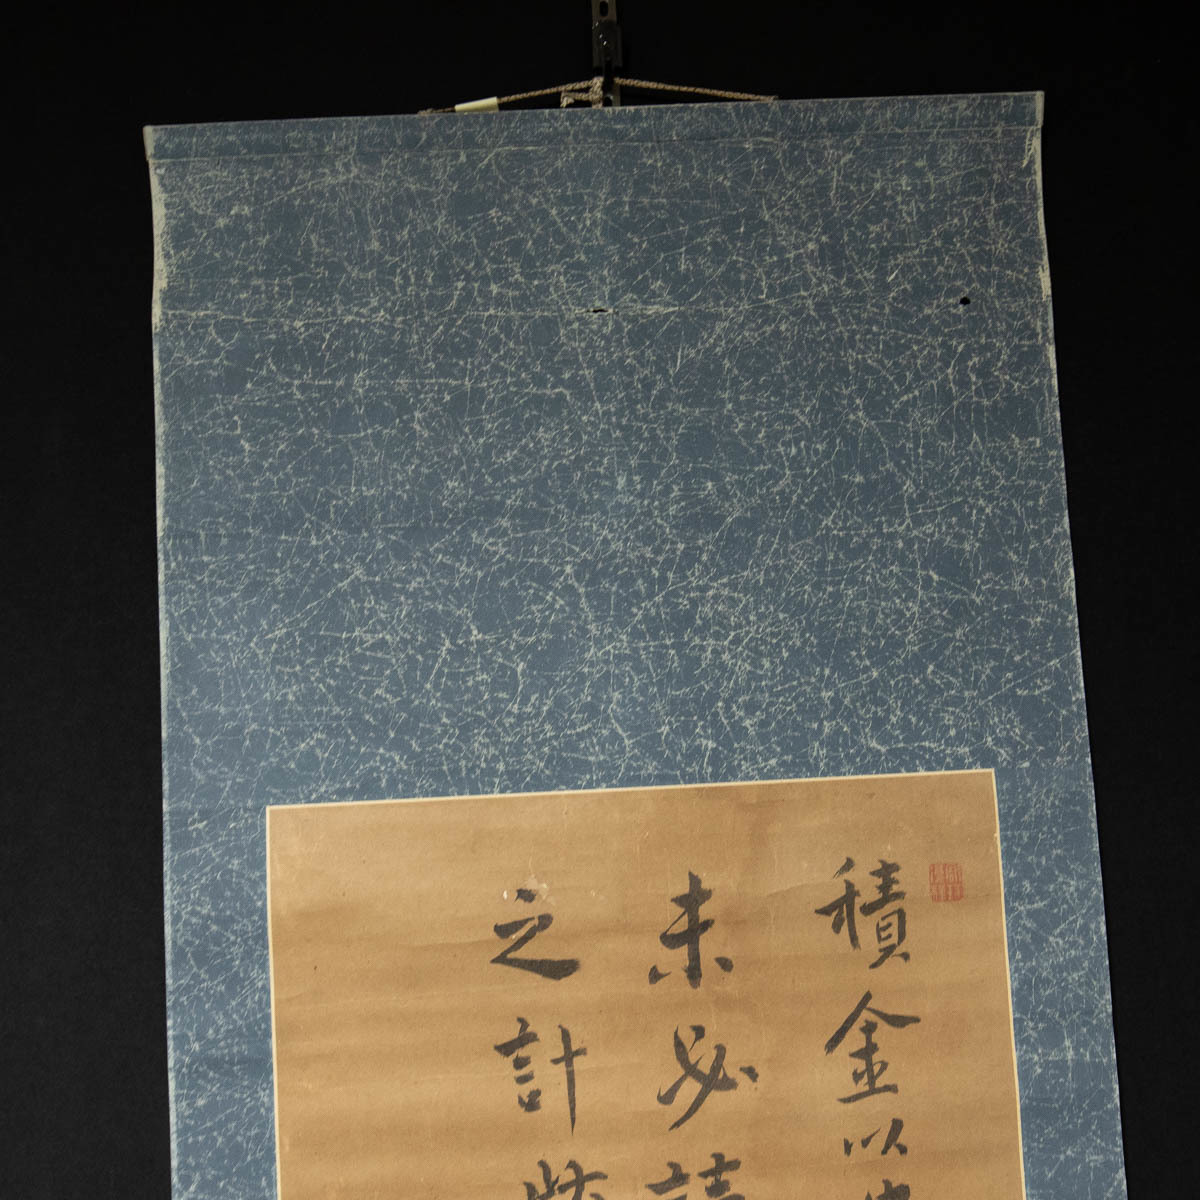 積金以
未必讀
之計